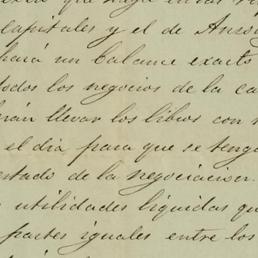 capitales y el de
hará un balance exacto
todos los negocios de la ca
rán llevar los libros con
el día para que se teng
estado de la negociacion.
utilidades liquidas qu
partes iguales entre los